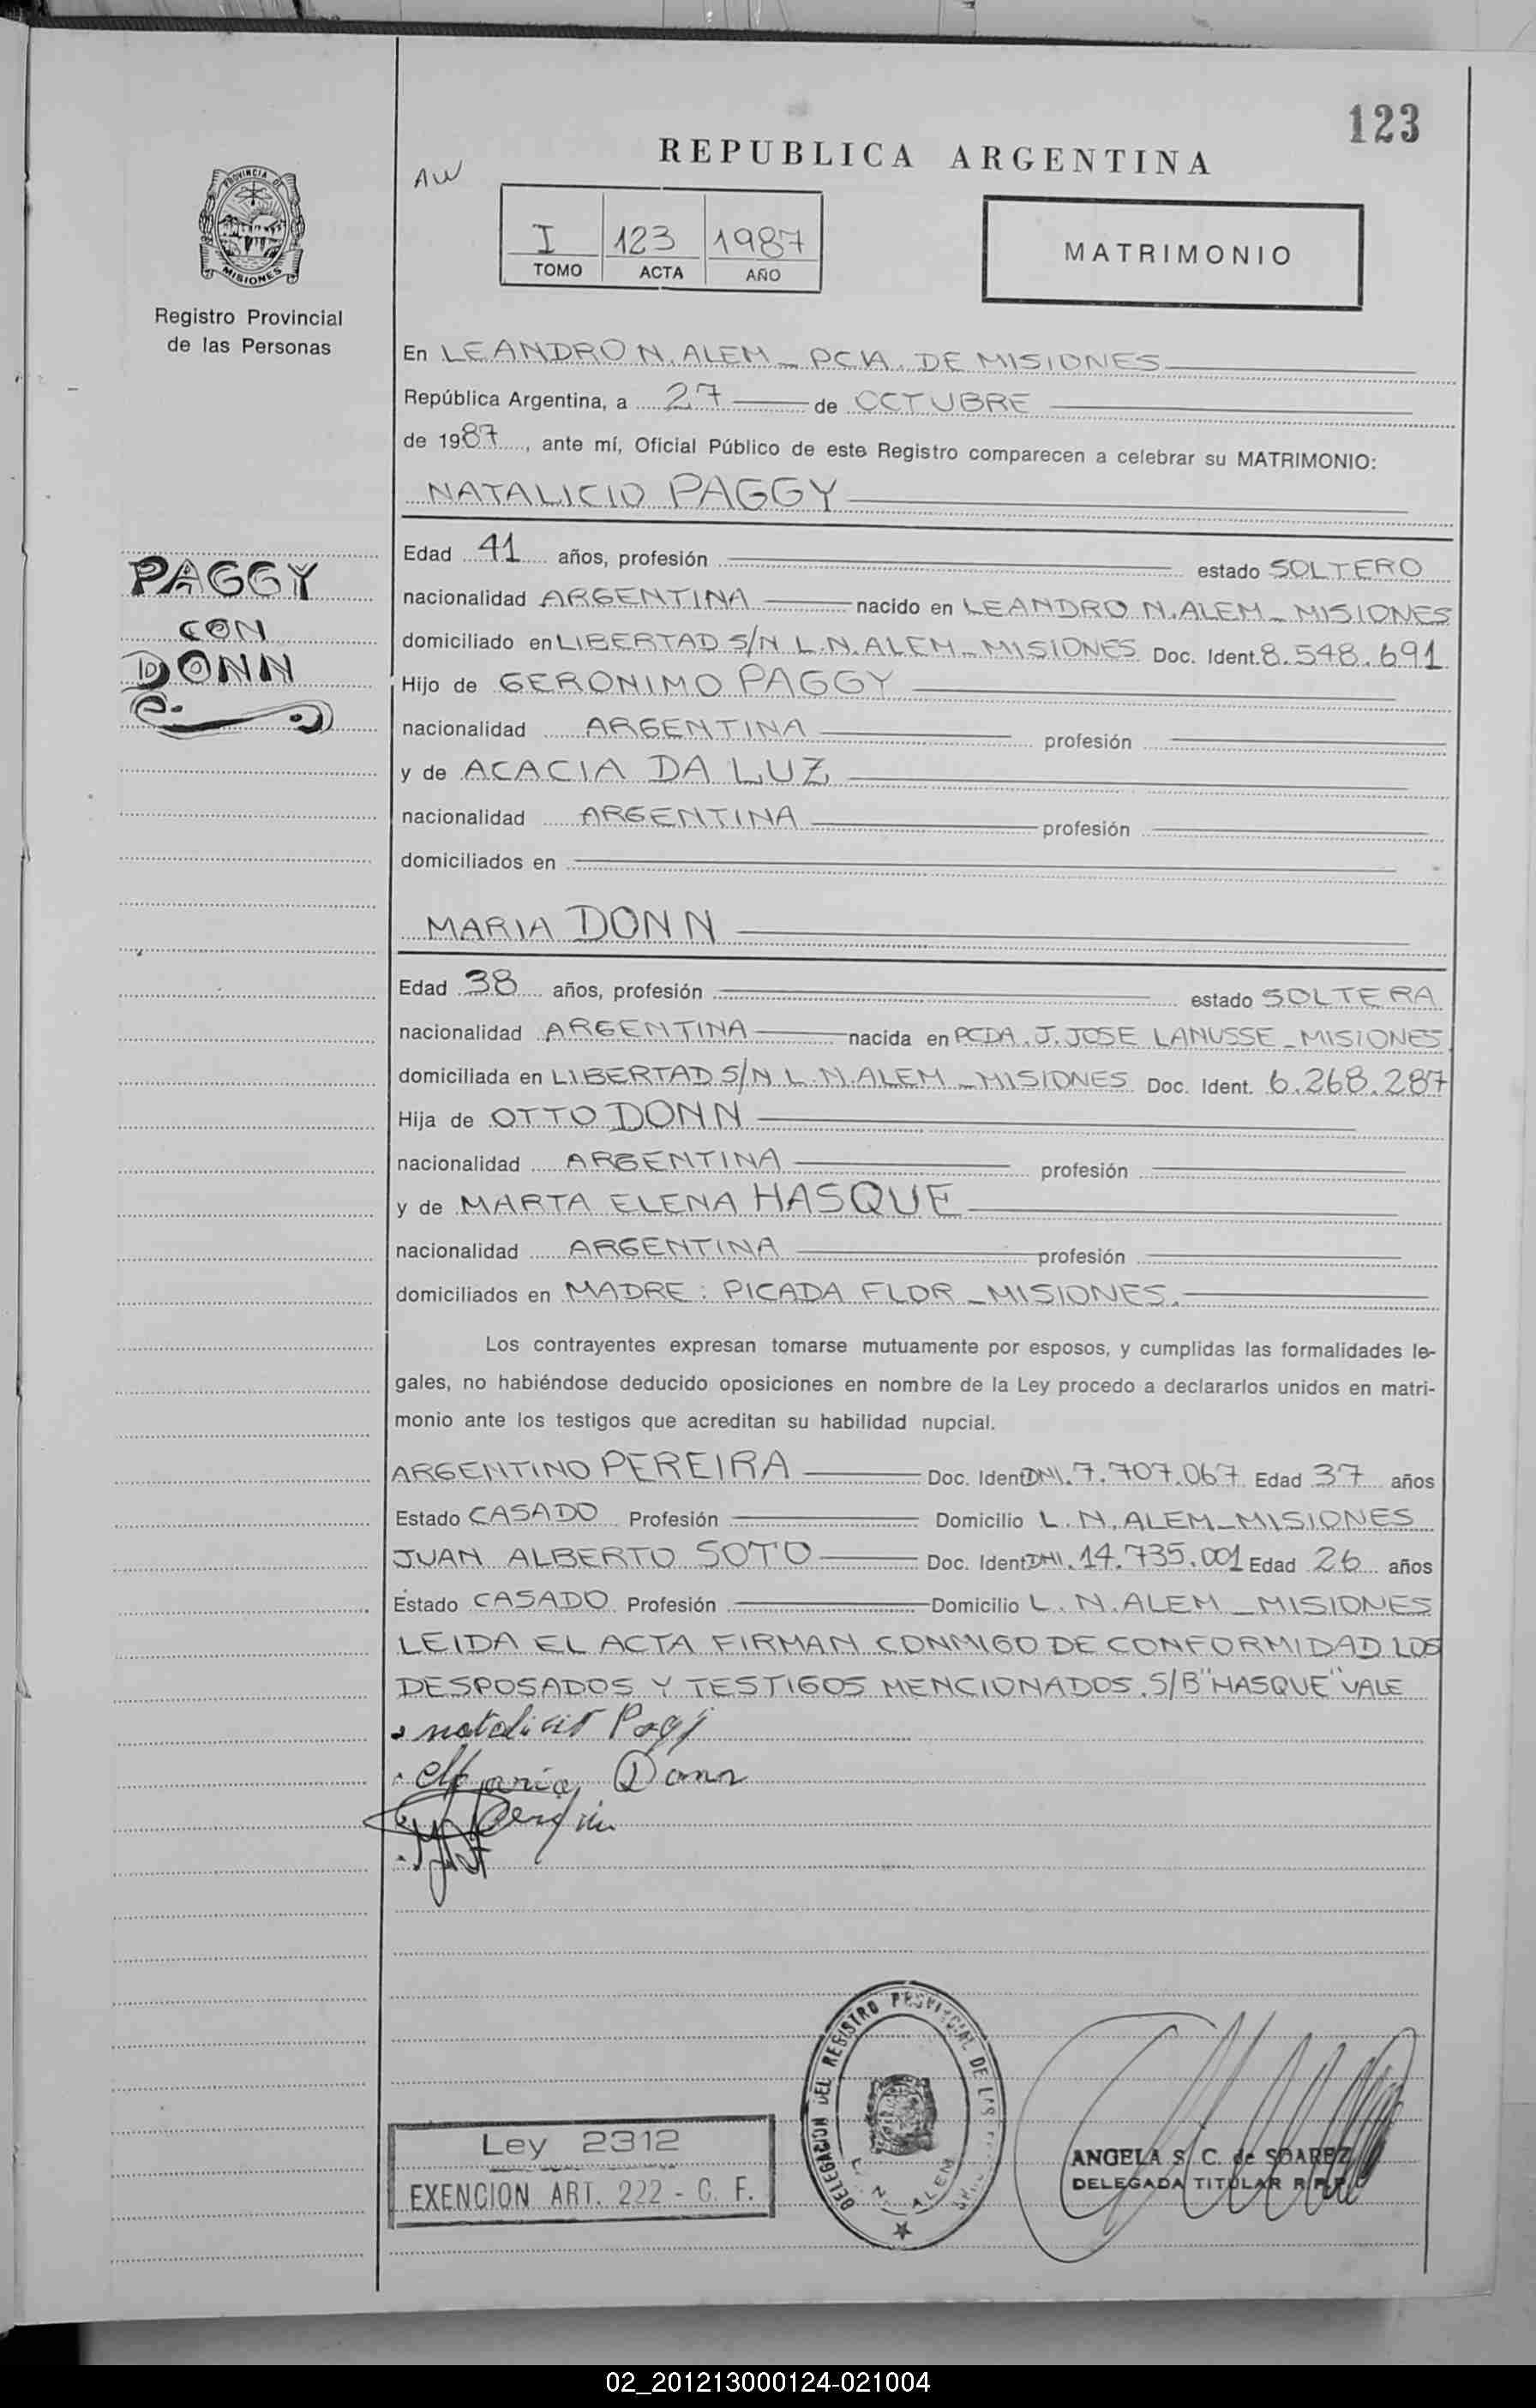 123
REPUBLICA ARGENTINA
AW
PROVINCIA DE
MISIONES
I 123 1987
TOMO ACTA AÑO
MATRIMONIO
Registro Provincial
de las Personas
En LEANDRO N. ALEM - PCIA. DE MISIONES
República Argentina, a 27 de OCTUBRE
de 1987, ante mí, Oficial Público de este Registro comparecen a celebrar su MATRIMONIO:
NATALICIO PAGGY
PAGGY
CON
DONN
Edad 41 años, profesión estado SOLTERO
nacionalidad ARGENTINA nacido en LEANDRO N. ALEM - MISIONES
domiciliado en LIBERTAD S/N L.N. ALEM - MISIONES Doc. Ident. 8.548.691
Hijo de GERONIMO PAGGY
nacionalidad ARGENTINA profesión
y de ACACIA DA LUZ
nacionalidad ARGENTINA profesión
domiciliados en
MARIA DONN
Edad 38 años, profesión estado SOLTERA
nacionalidad ARGENTINA nacida en PCDA. J. JOSE LANUSSE - MISIONES
domiciliada en LIBERTAD S/N L.N. ALEM - MISIONES Doc. Ident. 6.268.287
Hija de OTTO DONN
nacionalidad ARGENTINA profesión
y de MARTA ELENA HASQUE
nacionalidad ARGENTINA profesión
domiciliados en MADRE: PICADA FLOR - MISIONES.
Los contrayentes expresan tomarse mutuamente por esposos, y cumplidas las formalidades le-
gales, no habiéndose deducido oposiciones en nombre de la Ley procedo a declararlos unidos en matri-
monio ante los testigos que acreditan su habilidad nupcial.
ARGENTINO PEREIRA Doc. Ident DNI. 7.707.067 Edad 37 años
Estado CASADO Profesión Domicilio L.N. ALEM - MISIONES
JUAN ALBERTO SOTO Doc. Ident DNI. 14.735.001 Edad 26 años
Estado CASADO Profesión Domicilio L.N. ALEM - MISIONES
LEIDA EL ACTA FIRMAN CONMIGO DE CONFORMIDAD LOS
DESPOSADOS Y TESTIGOS MENCIONADOS. S/B "HASQUE" VALE
Maria Donn
DELEGACION DEL REGISTRO PROVINCIAL DE LAS
L. N. ALEM
Ley 2312
EXENCION ART. 222 - C. F.
ANGELA S. C. de SOAREZ
DELEGADA TITULAR R.P.P.
02_201213000124-021004